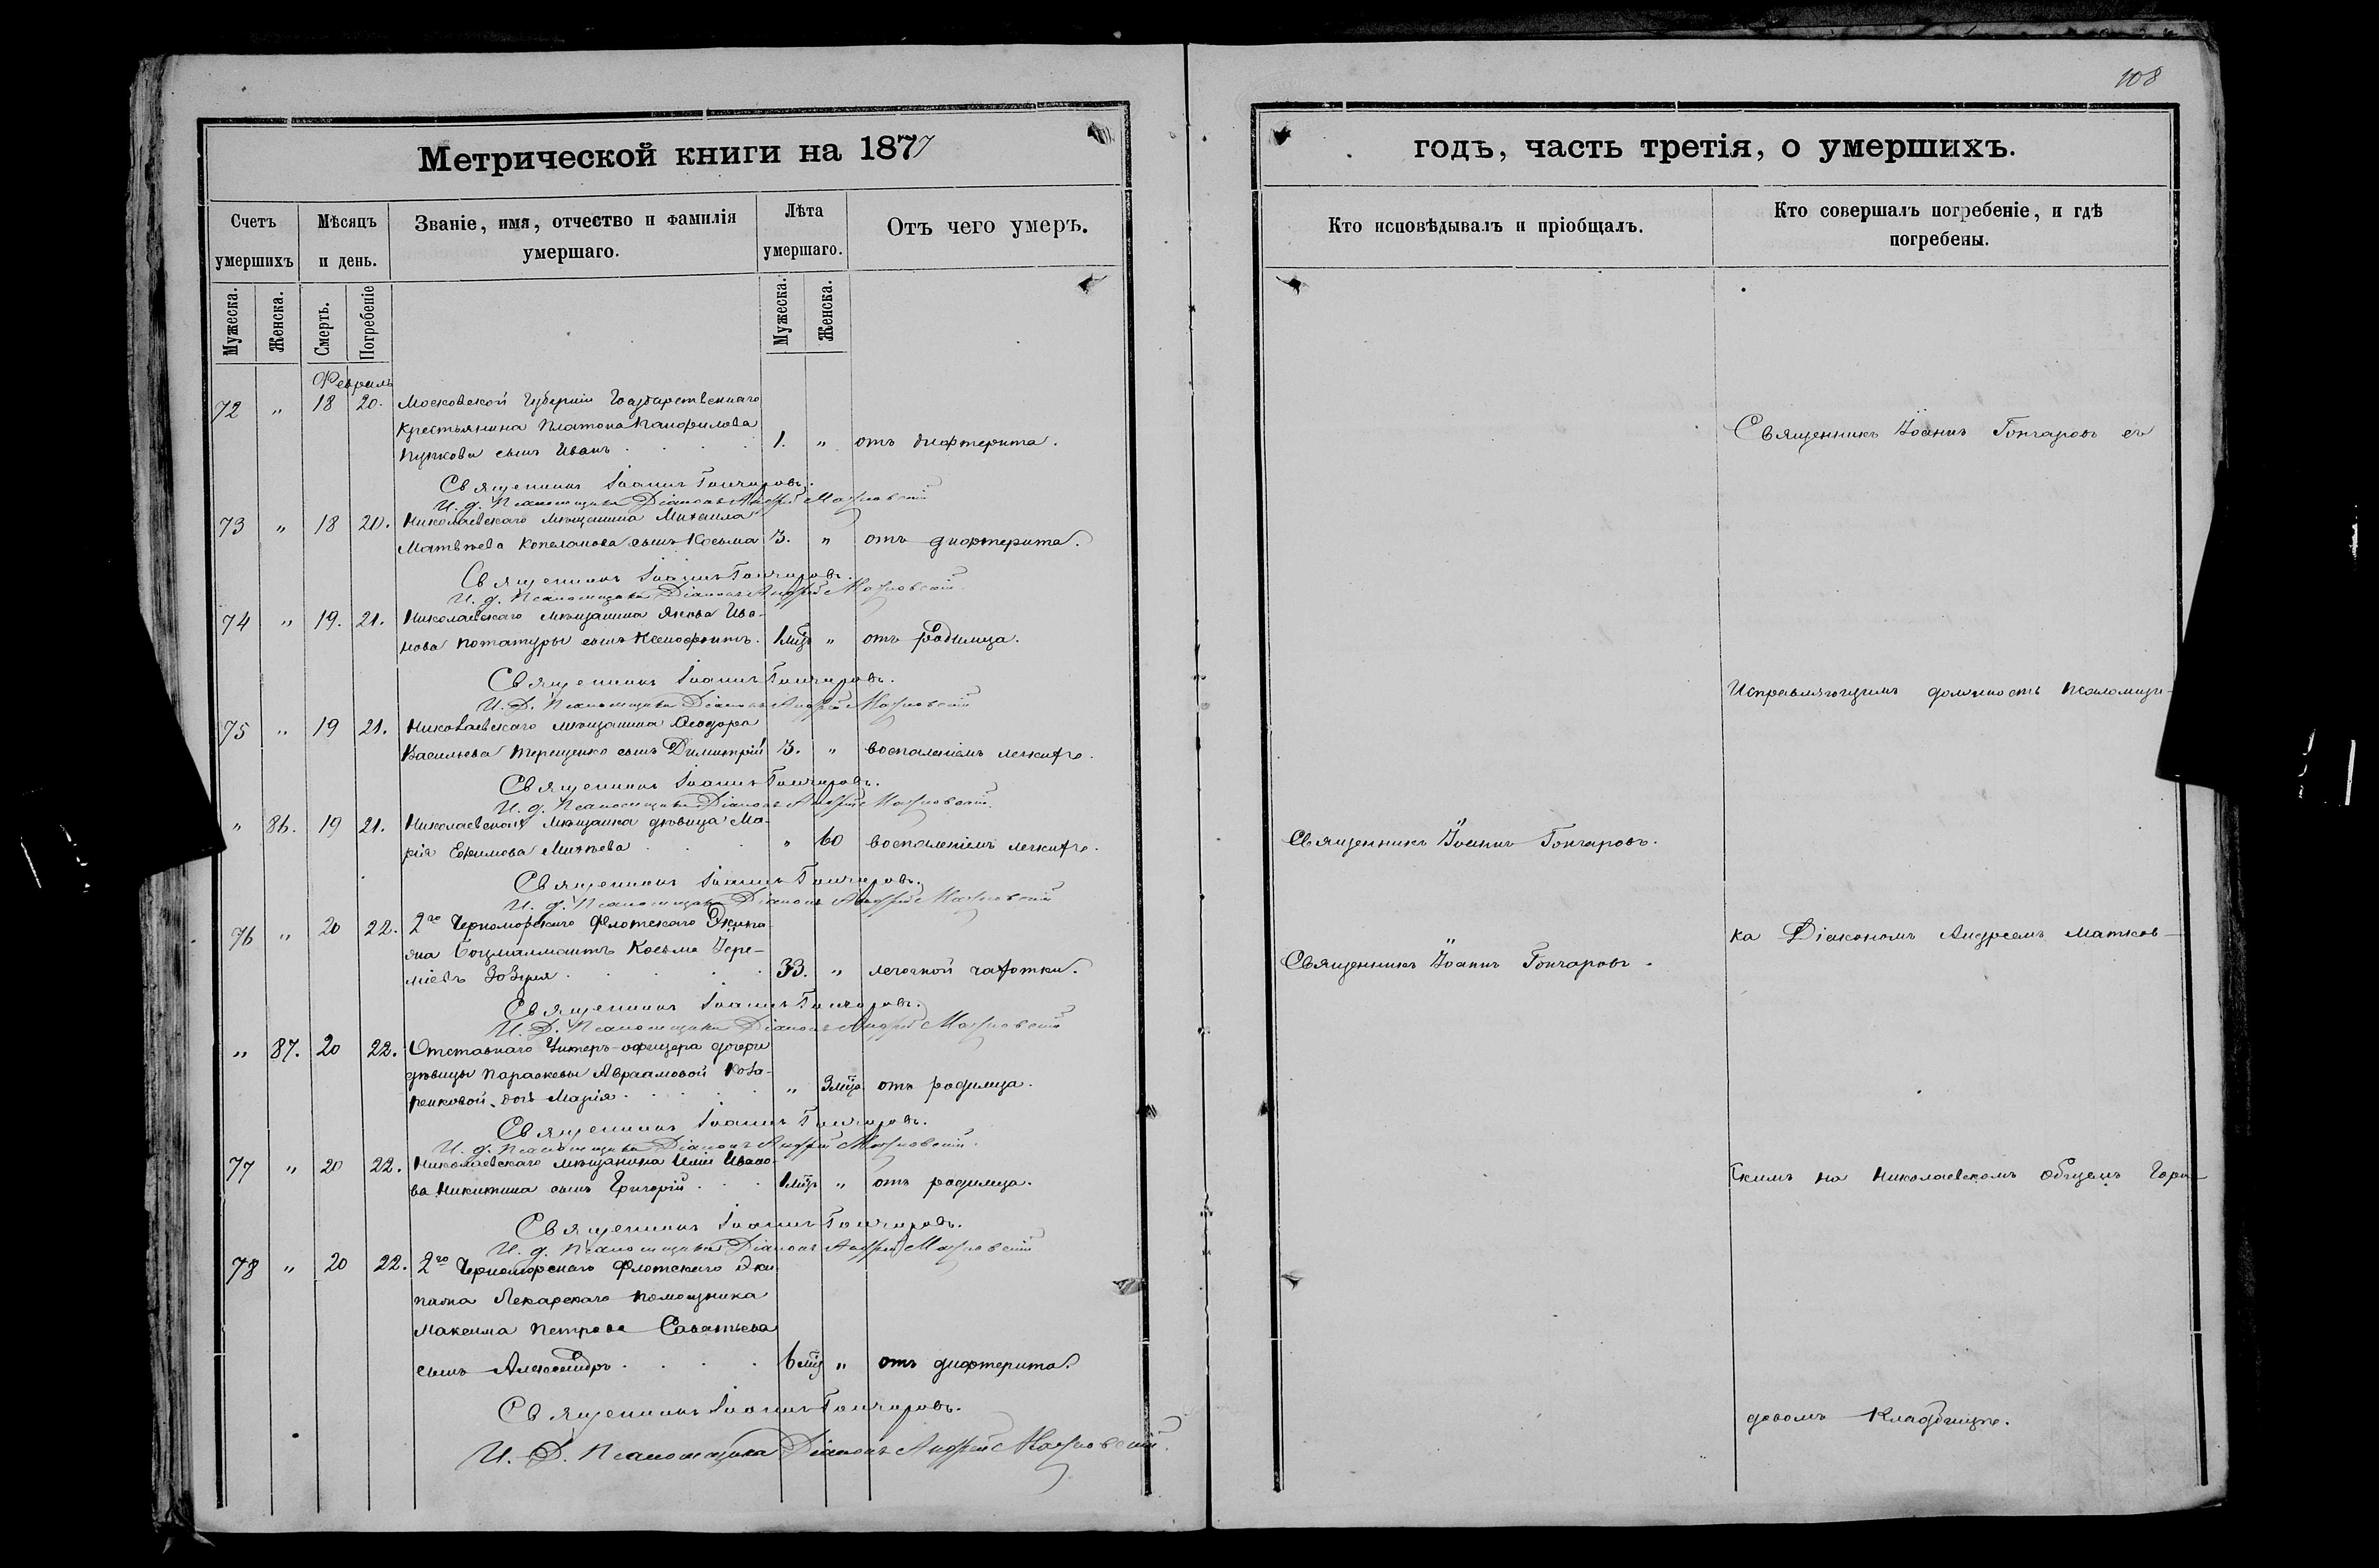 108
Метрической книги на 1877
годъ, часть третія, о умершихъ.
Счетъ умершихъ
Мѣсяцъ и день.
Званіе, имя, отчество и фамилія умершаго.
Лѣта умершаго.
Отъ чего умеръ.
Кто исповѣдывалъ и пріобщалъ.
Кто совершалъ погребеніе, и гдѣ погребены.
Мужеска.
Женска.
Смерть.
Погребеніе
Мужеска.
Женска.
Февраль
72 " 18 20. Московской Губерніи Государственнаго
Крестьянина Платона Панфилова
Пупкова сынъ Иванъ 1. " отъ дифтерита.
Священникъ Іоаннъ Гончаровъ.
И. д. Псаломщика Діаконъ Андрей Матковскій
73 " 18 20. Николаевскаго мѣщанина Михаила
Матвѣева Копеланова сынъ Косьма 3. " отъ дифтерита.
Священникъ Іоаннъ Гончаровъ.
И. д. Псаломщика Діаконъ Андрей Матковскій
74 " 19. 21. Николаевскаго мѣщанина Якова Ива-
нова Потатуры сынъ Ксенофонтъ. 1 мѣц " отъ родимца.
Священникъ Іоаннъ Гончаровъ.
И. Д. Псаломщика Діаконъ Андрей Матковскій
75 " 19 21. Николаевскаго мѣщанина Ѳеодора
Васильева Терещенко сынъ Димитрій 3. " воспаленіемъ легкихъ.
Священникъ Іоаннъ Гончаровъ.
И. д. Псаломщика Діаконъ Андрей Матковскій
" 86. 19 21. Николаевская мѣщанка дѣвица Ма-
рія Ефимова Михѣева " 60 воспаленіемъ легкихъ.
Священникъ Іоаннъ Гончаровъ.
И. д. Псаломщика Діаконъ Андрей Матковскій
76 " 20 22. 2го Черноморскаго Флотскаго Экипа-
жа Боцманматъ Косьма Іере-
міевъ 33. " легочной чахотки.
Священникъ Іоаннъ Гончаровъ.
И. Д. Псаломщика Діаконъ Андрей Матковскій
" 87. 20 22. Отставнаго Унтеръ-офицера дочери
дѣвицы Параскевы Авраамовой
дочь Марія " 3 мѣц отъ родимца.
Священникъ Іоаннъ Гончаровъ.
И. д. Псаломщика Діаконъ Андрей Матковскій
77 " 20 22. Николаевскаго мѣщанина Иліи Ивано-
ва Никитина сынъ Григорій 1 мѣц " отъ родимца.
Священникъ Іоаннъ Гончаровъ.
И. д. Псаломщика Діаконъ Андрей Матковскій
78 " 20 22. 2го Черноморскаго Флотскаго Эки-
пажа Лекарскаго помощника
Максима Петрова Саватьева
сынъ Александръ 6 мѣц " отъ дифтерита.
Священникъ Іоаннъ Гончаровъ.
И. Д. Псаломщика Діаконъ Андрей Матковскій.
Священникъ Іоаннъ Гончаровъ.
Священникъ Іоаннъ Гончаровъ.
Священникъ Іоаннъ Гончаровъ съ
Исправляющимъ должность Псаломщи-
ка Діакономъ Андреемъ Матков-
скимъ на Николаевскомъ общемъ Горо-
довомъ Кладбищѣ.